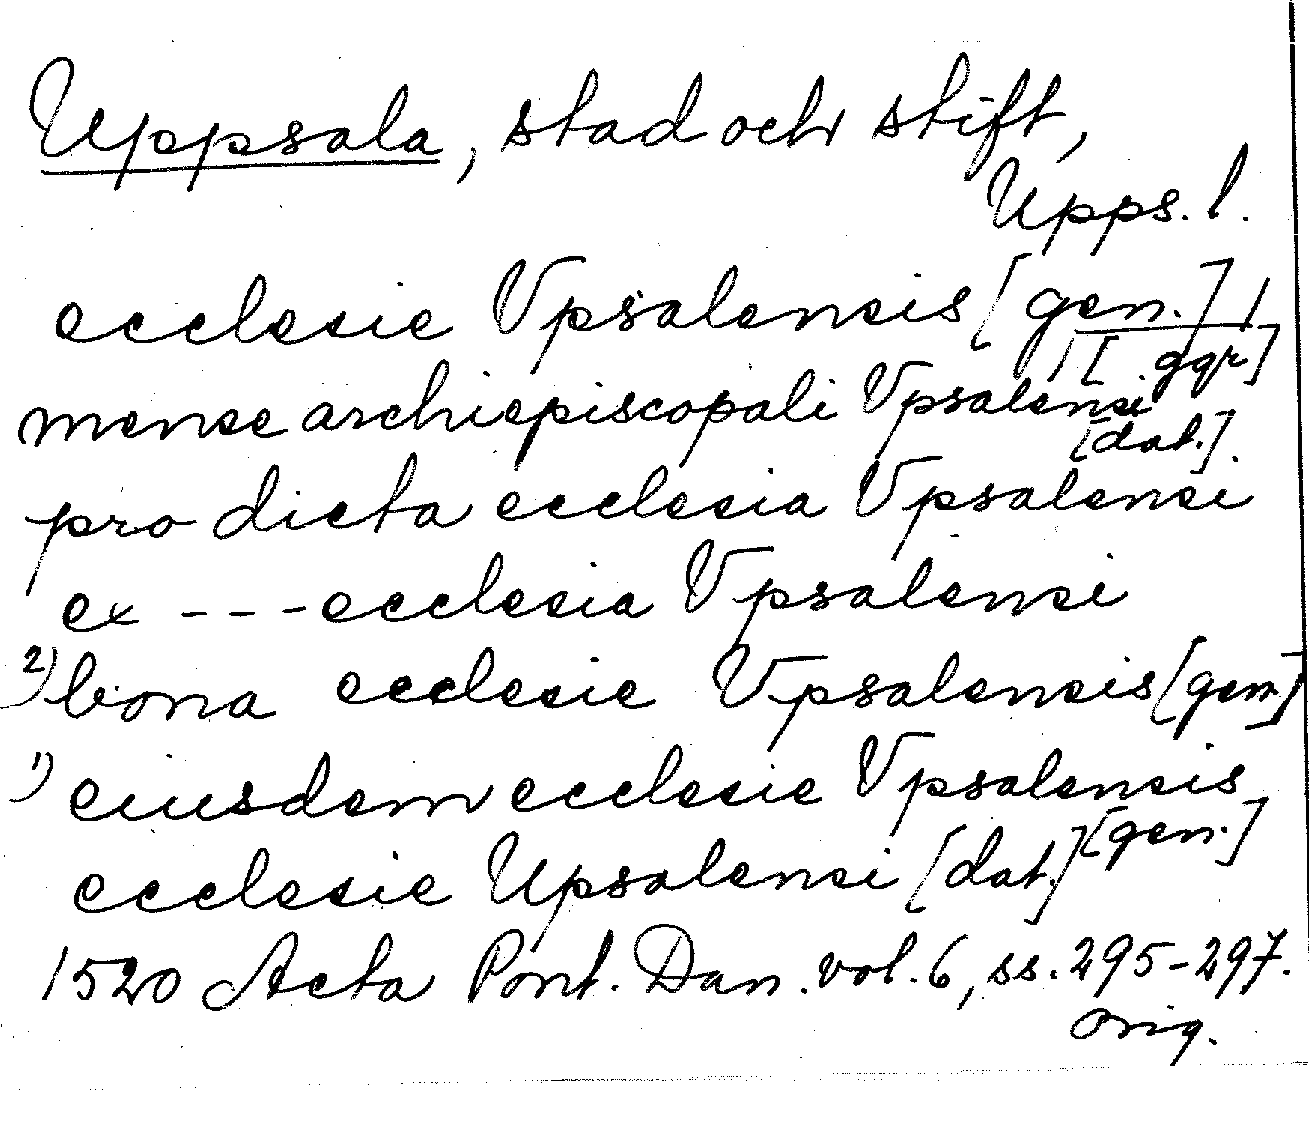 Uppsala, stad och stift,
Upps. l.
ecclesie Vpsalensis [gen.]
[ ggr]
mense archiepiscopali Vpsalensi
[dat.].
pro dicta ecclesia Vpsalensi
ex - - - ecclesia Vpsalensi
2) bona ecclesie Vpsalensis [gen]
1) eiusdem ecclesie Vpsalensis
[gen.]
ecclesie Upsalensi [dat.]
1520 Acta Pont. Dan. vol. 6, ss. 295-297.
Orig.